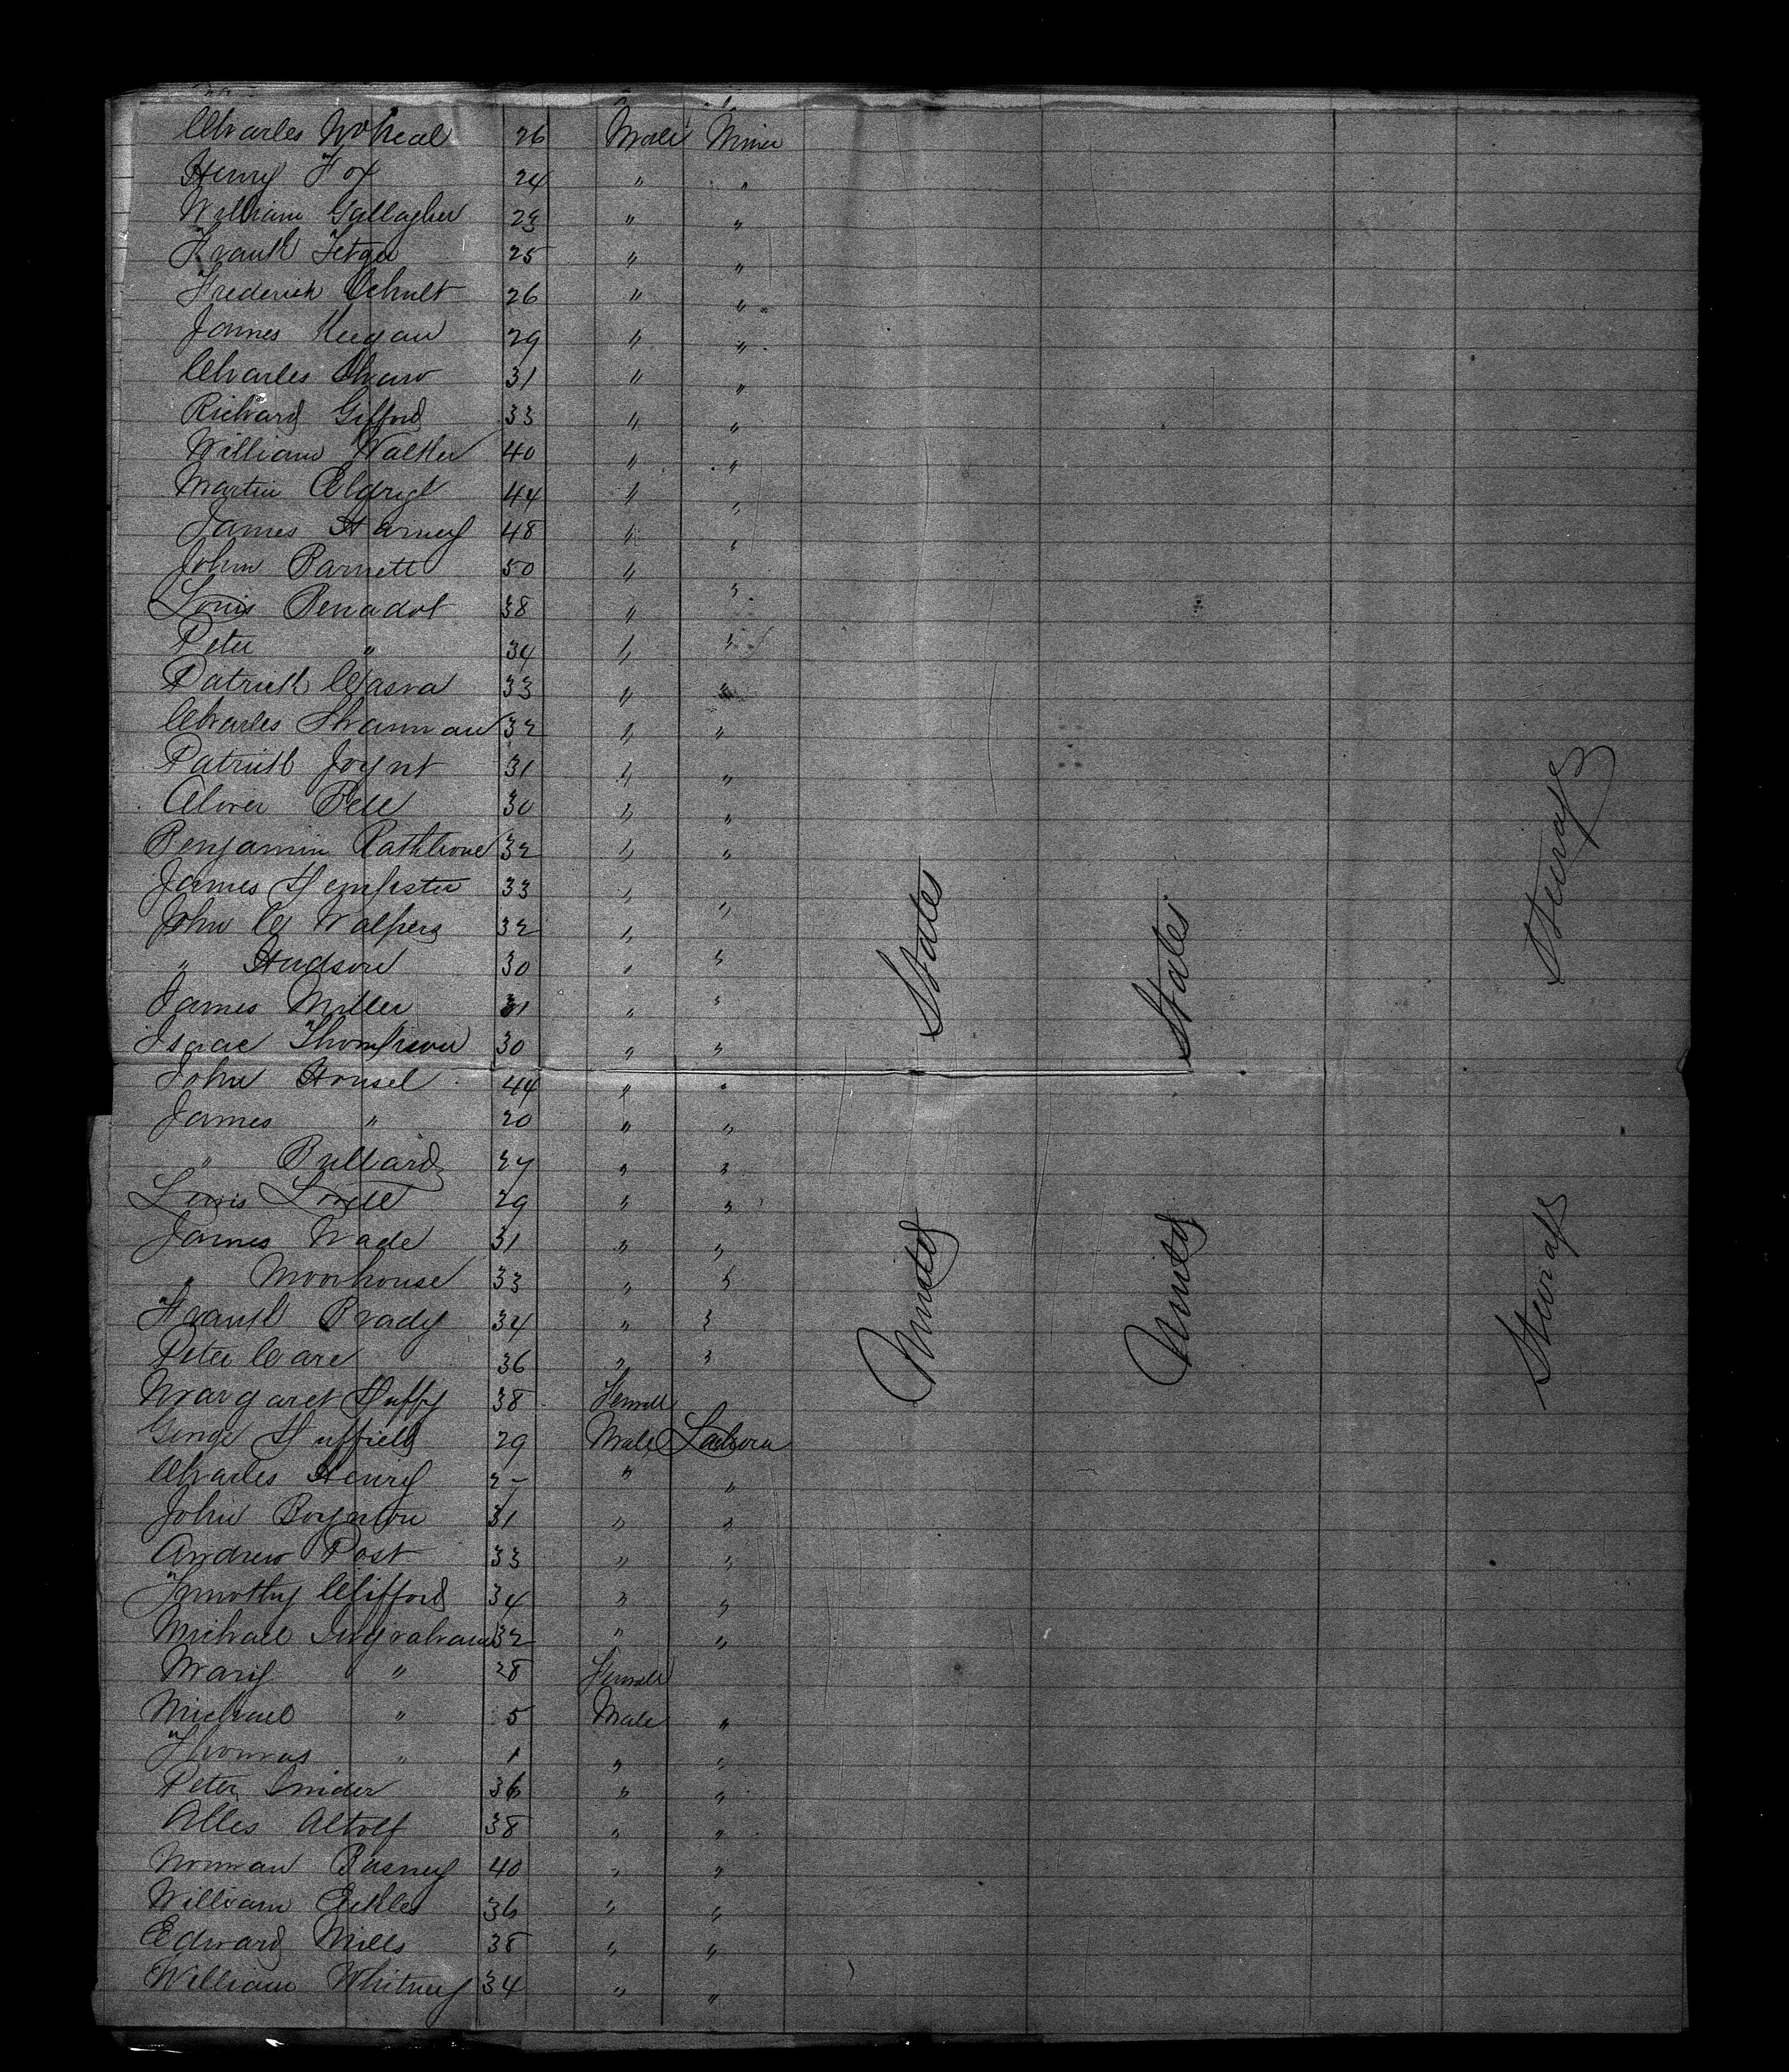 Charles McNeal 26 Male Miner
Henry Fox 24 " "
William Gallagher 23 " "
Frank 25 " "
Frederick Schult 26 " "
James Keegan 29 " "
Charles Shaw 31 " "
Richard Gifford 33 " "
William Walker 40 " "
Martin 44 " "
James Harney 48 " "
John Barnett 50 " "
Louis Benadot 38 " "
Peter " 34 " "
Patrick 33 " "
Charles Shannan 32 " "
Patrick Joynt 31 " "
Oliver Bell 30 " "
Benjamin Rathbone 32 " "
James Hempster 33 " "
John C Walpers 32 "
" Hudson 30 " "
James Miller 31 " "
Isaac Thompson 30 " "
John Housel 44 " "
James " 20 " "
" Bullard 27 " "
Louis 29 " "
James Wade 31 " "
" Moorhouse 33 " "
Frank Brady 34 " "
Peter Care 36 " "
Margaret Duffy 38 Female
George Duffield 29 Male Laborer
Charles Henry " "
John Boynton 31 " "
Andrew Post 33 " "
Timothy Clifford 34 " "
Michael Ingraham 32 " "
Mary " 28 Female
Michael " 5 Male "
Thomas " 1 " "
Peter Snider 36 " "
38 " "
Norman Basney 40 " "
William Eckles 36 " "
Edward Mills 38 " "
William Whitney 34 " "
United States
United States
Steerage
Steerage